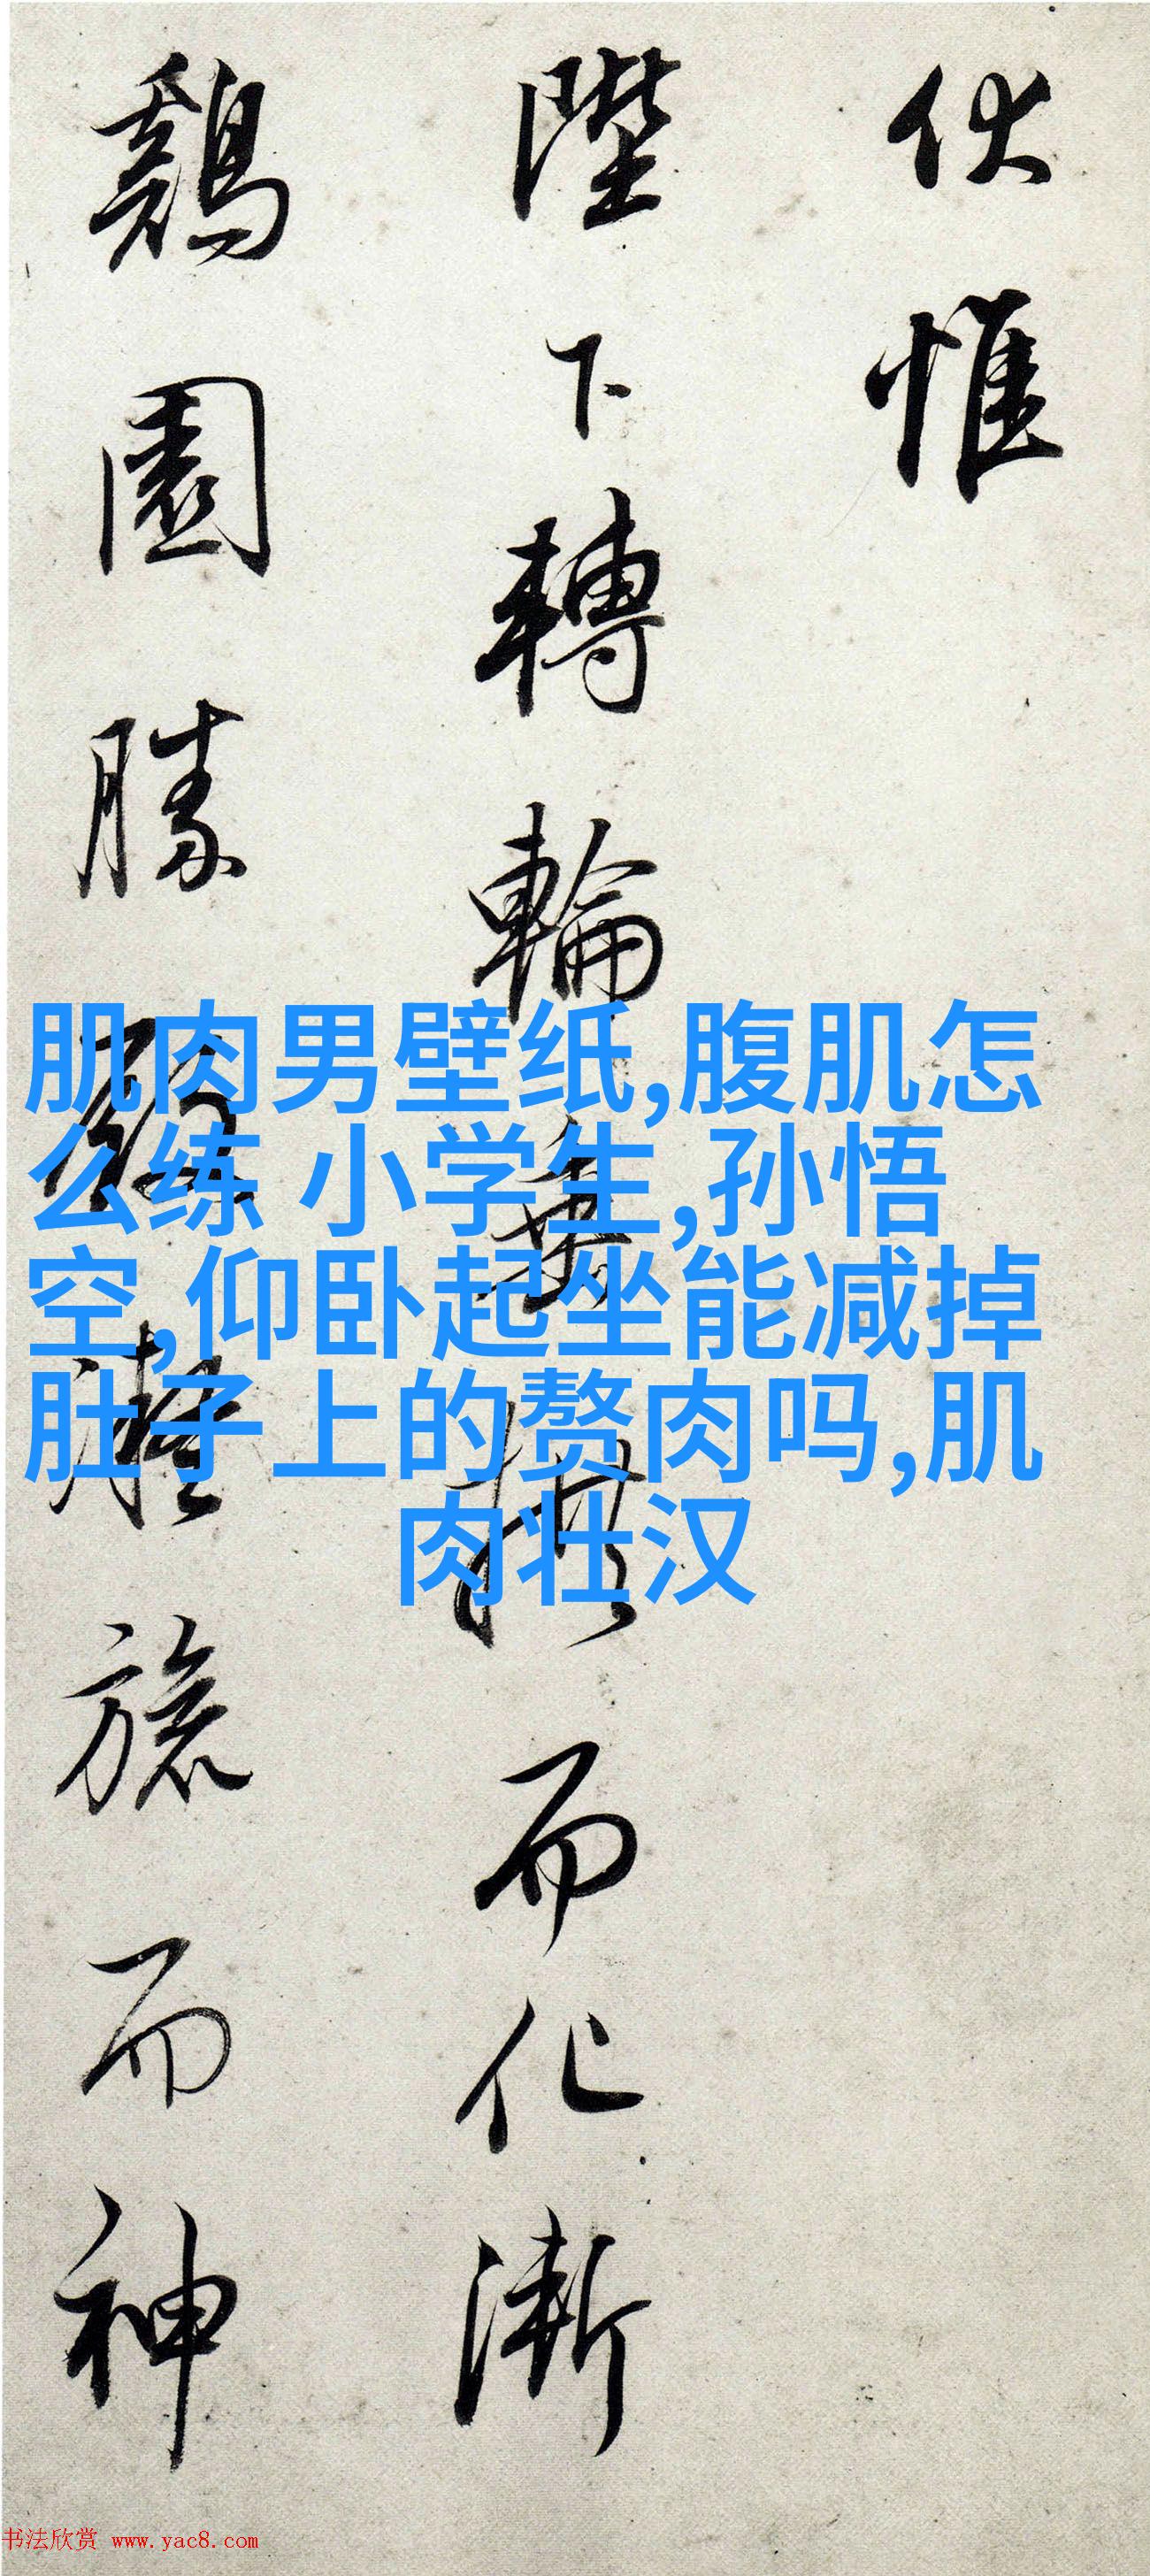 伏惟
陛下轉輪垂拱而化漸
鷄園勝殿凝旒而神
肌肉男壁纸,腹肌怎
么练 小学生,孙悟
空,仰卧起坐能减掉
肚子上的赘肉吗,肌
肉壮汉
书法欣赏 www.yac8.com